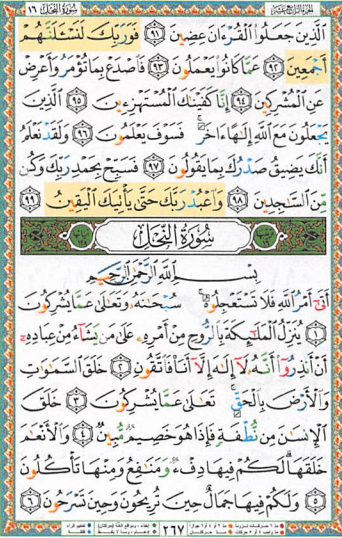 الجزء الرابع عشر سورة النحل ١٦
الَّذِينَ جَعَلُوا الْقُرْءَانَ عِضِينَ ٩١ فَوَرَبِّكَ لَنَسْـَٔلَنَّهُمْ
أَجْمَعِينَ ٩٢ عَمَّا كَانُوا يَعْمَلُونَ ٩٣ فَاصْدَعْ بِمَا تُؤْمَرُ وَأَعْرِضْ
عَنِ الْمُشْرِكِينَ ٩٤ إِنَّا كَفَيْنَٰكَ الْمُسْتَهْزِءِينَ ٩٥ الَّذِينَ
يَجْعَلُونَ مَعَ اللَّهِ إِلَٰهًا ءَاخَرَ ۚ فَسَوْفَ يَعْلَمُونَ ٩٦ وَلَقَدْ نَعْلَمُ
أَنَّكَ يَضِيقُ صَدْرُكَ بِمَا يَقُولُونَ ٩٧ فَسَبِّحْ بِحَمْدِ رَبِّكَ وَكُن
مِّنَ السَّٰجِدِينَ ٩٨ وَاعْبُدْ رَبَّكَ حَتَّىٰ يَأْتِيَكَ الْيَقِينُ ٩٩
سُورَةُ النَّحْلِ
بِسْمِ اللَّهِ الرَّحْمَٰنِ الرَّحِيمِ
أَتَىٰٓ أَمْرُ اللَّهِ فَلَا تَسْتَعْجِلُوهُ ۚ سُبْحَٰنَهُۥ وَتَعَٰلَىٰ عَمَّا يُشْرِكُونَ
١ يُنَزِّلُ الْمَلَٰٓئِكَةَ بِالرُّوحِ مِنْ أَمْرِهِۦ عَلَىٰ مَن يَشَآءُ مِنْ عِبَادِهِۦٓ
أَنْ أَنذِرُوٓا أَنَّهُۥ لَآ إِلَٰهَ إِلَّآ أَنَا۠ فَاتَّقُونِ ٢ خَلَقَ السَّمَٰوَٰتِ
وَالْأَرْضَ بِالْحَقِّ ۚ تَعَٰلَىٰ عَمَّا يُشْرِكُونَ ٣ خَلَقَ
الْإِنسَٰنَ مِن نُّطْفَةٍ فَإِذَا هُوَ خَصِيمٌ مُّبِينٌ ٤ وَالْأَنْعَٰمَ
خَلَقَهَا ۗ لَكُمْ فِيهَا دِفْءٌ وَمَنَٰفِعُ وَمِنْهَا تَأْكُلُونَ
٥ وَلَكُمْ فِيهَا جَمَالٌ حِينَ تُرِيحُونَ وَحِينَ تَسْرَحُونَ ٦
٢٦٧